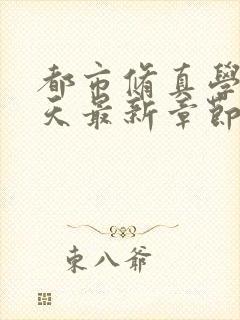 都市脩真學
天最新章節
東八爺